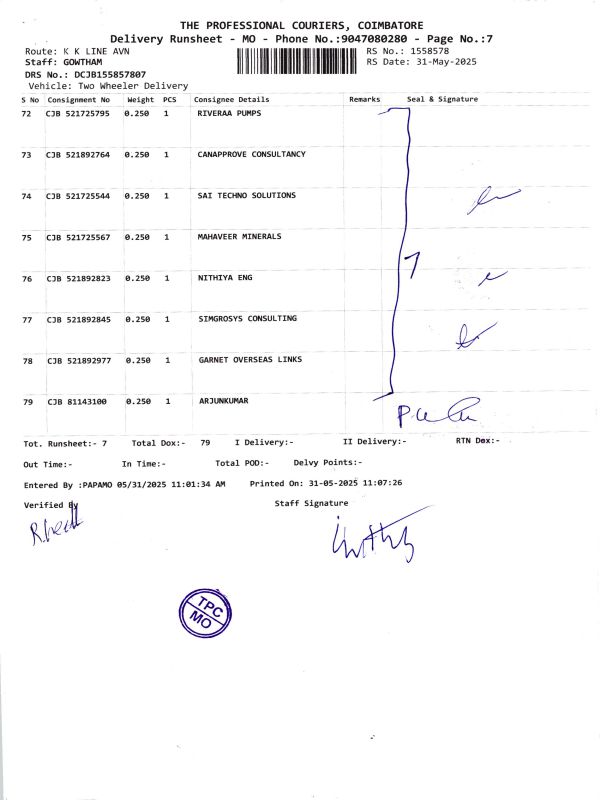 THE PROFESSIONAL COURIERS, COIMBATORE
Delivery Runsheet - MO - Phone No.:9047080280 - Page No.:7
Route: K K LINE AVN RS No.: 1558578
Staff: GOWTHAM RS Date: 31-May-2025
DRS No.: DCJB155857807
Vehicle: Two Wheeler Delivery
S No Consignment No Weight PCS Consignee Details Remarks Seal & Signature
72 CJB 521725795 0.250 1 RIVERAA PUMPS
73 CJB 521892764 0.250 1 CANAPPROVE CONSULTANCY
74 CJB 521725544 0.250 1 SAI TECHNO SOLUTIONS
75 CJB 521725567 0.250 1 MAHAVEER MINERALS
76 CJB 521892823 0.250 1 NITHIYA ENG
77 CJB 521892845 0.250 1 SIMGROSYS CONSULTING
78 CJB 521892977 0.250 1 GARNET OVERSEAS LINKS
79 CJB 81143100 0.250 1 ARJUNKUMAR
Tot. Runsheet:- 7 Total Dox:- 79 I Delivery:- II Delivery:- RTN Dox:-
Out Time:- In Time:- Total POD:- Delvy Points:-
Entered By :PAPAMO 05/31/2025 11:01:34 AM Printed On: 31-05-2025 11:07:26
Verified By Staff Signature
TPC
MO